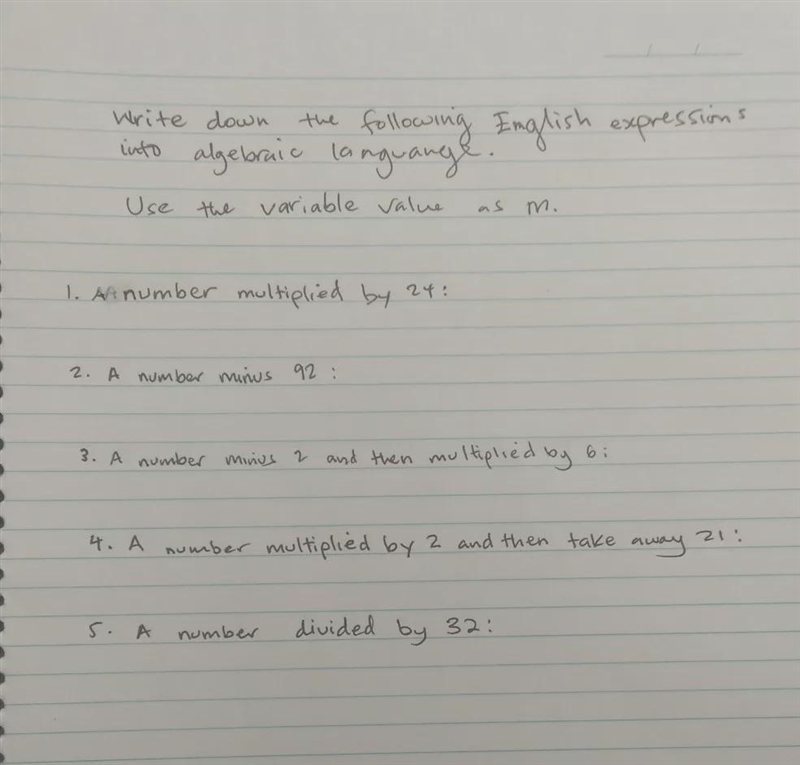 Write down the following English expressions
into algebraic languange.
Use the variable value as m.
1. A number multiplied by 24:
2. A number minus 92:
3. A number minus 2 and then multiplied by 6:
4. A number multiplied by 2 and then take away 21:
5. A number divided by 32: